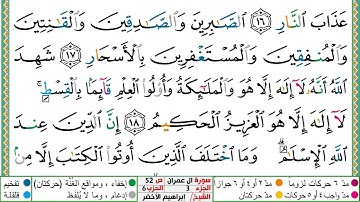 عَذَابَ النَّارِ ﴿١٦﴾ الصَّابِرِينَ وَالصَّادِقِينَ وَالْقَانِتِينَ
وَالْمُنفِقِينَ وَالْمُسْتَغْفِرِينَ بِالْأَسْحَارِ ﴿١٧﴾ شَهِدَ
اللَّهُ أَنَّهُ لَا إِلَٰهَ إِلَّا هُوَ وَالْمَلَائِكَةُ وَأُولُو الْعِلْمِ قَائِمًا بِالْقِسْطِ ۚ
لَا إِلَٰهَ إِلَّا هُوَ الْعَزِيزُ الْحَكِيمُ ﴿١٨﴾ إِنَّ الدِّينَ عِندَ
اللَّهِ الْإِسْلَامُ ۗ وَمَا اخْتَلَفَ الَّذِينَ أُوتُوا الْكِتَابَ إِلَّا مِن
مدّ ٦ حركات لزوماً مدّ ٢ أو ٤ أو ٦ جوازاً سورة آل عمران ص 52 إخفاء، ومواقع الغُنَّة (حركتان) تفخيم
مدّ واجب ٤ أو ٥ حركات مدّ حركتان الجزء 3 الحزب 6 إدغام، وما لا يُلفَظ قلقلة
الشيخ/ إبراهيم الأخضر